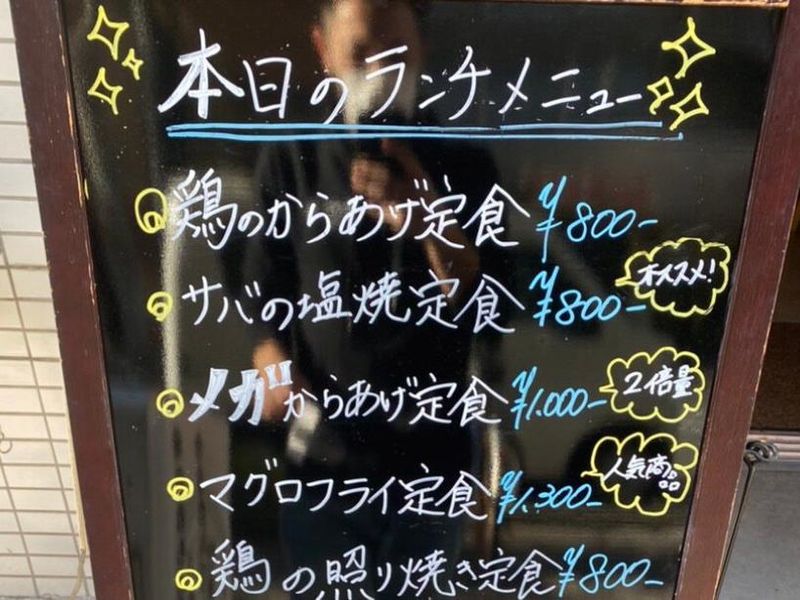 本日のランチメニュー
鶏のからあげ定食 ¥800-
サバの塩焼定食 ¥800-
オススメ!
メガからあげ定食 ¥1.000-
2倍量
マグロフライ定食 ¥1.300-
人気商品
鶏の照り焼き定食 ¥800-